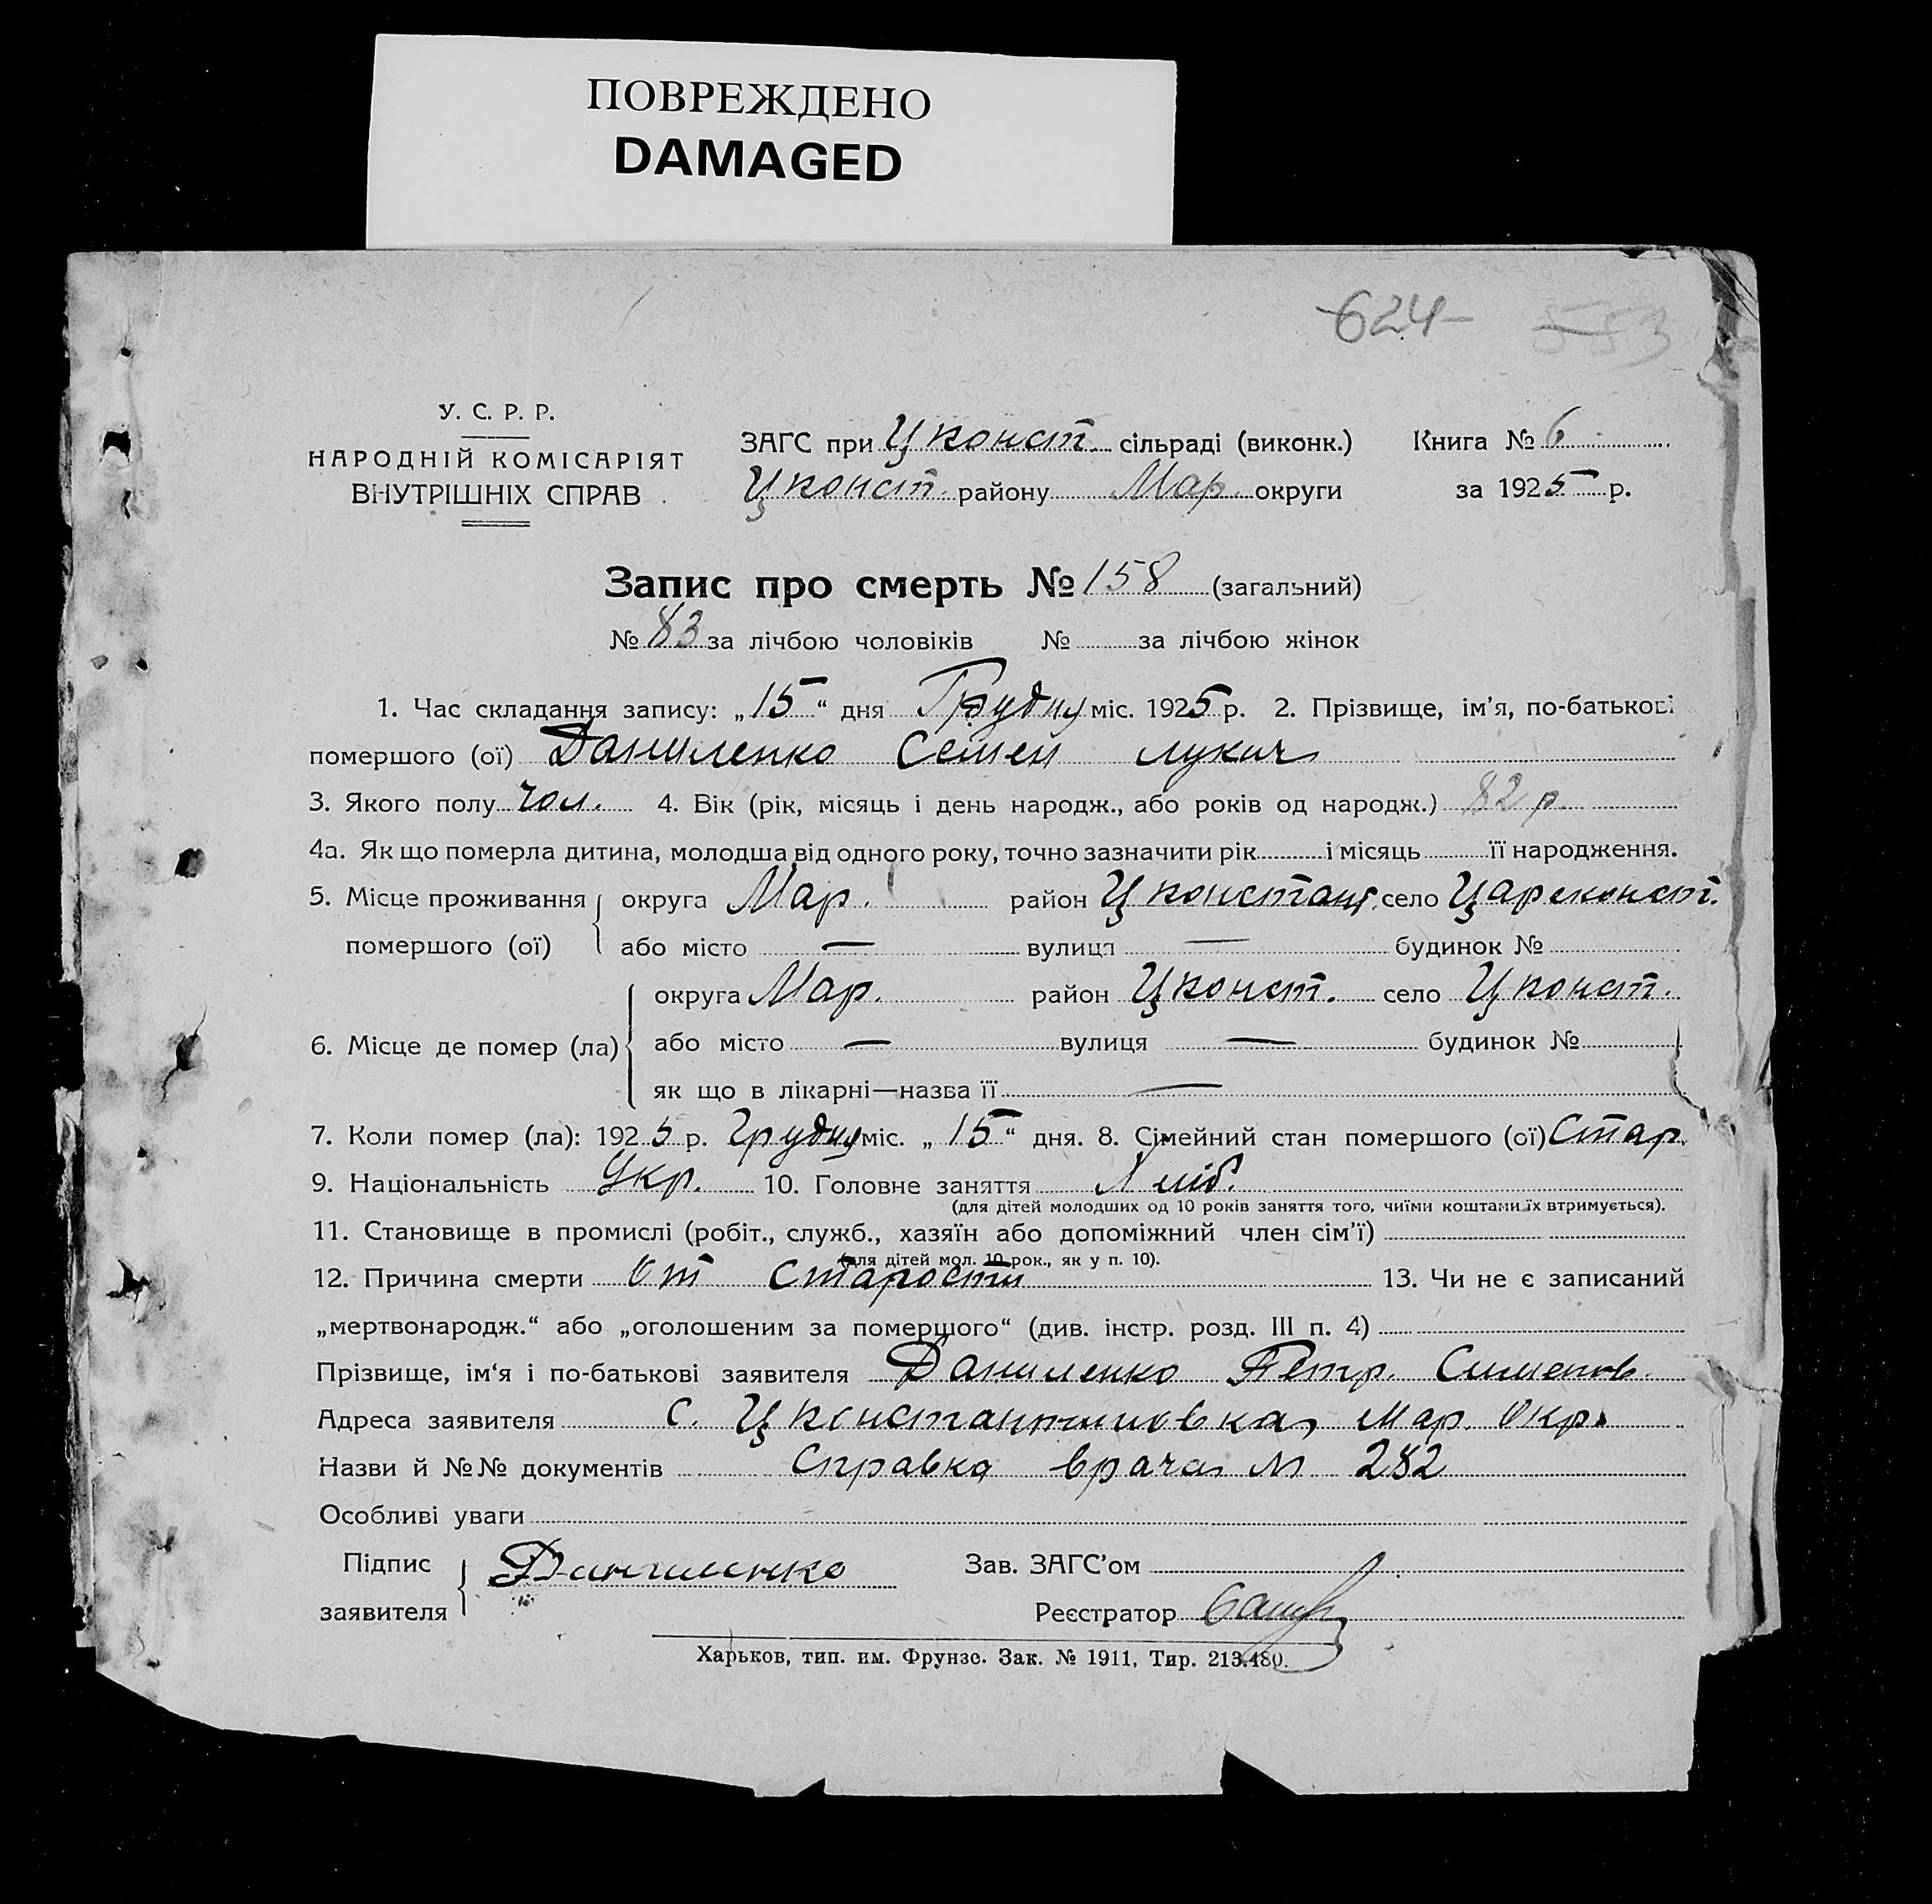 ПОВРЕЖДЕНО
DAMAGED
624
553
У. С. Р. Р.
НАРОДНІЙ КОМІСАРІЯТ
ВНУТРІШНІХ СПРАВ
ЗАГС при Цконст. сільраді (виконк.) Книга № 6
Цконст. району Мар. округи за 1925 р.
Запис про смерть № 158 (загальний)
№ 83 за лічбою чоловіків № за лічбою жінок
1. Час складання запису: „15“ дня Грудня міс. 1925 р. 2. Прізвище, ім'я, по-батькові
помершого (ої) Даниленко Семен Лукич
3. Якого полу чол. 4. Вік (рік, місяць і день народж., або років од народж.) 82 р.
4а. Як що померла дитина, молодша від одного року, точно зазначити рік і місяць її народження.
5. Місце проживання округа Мар. район Цконстант. село Цареконст.
помершого (ої) або місто — вулиця — будинок №
округа Мар. район Цконст. село Цконст.
6. Місце де помер (ла) або місто — вулиця — будинок №
як що в лікарні—назва її —
7. Коли помер (ла): 1925 р. Грудня міс. „15“ дня. 8. Сімейний стан помершого (ої)
9. Національність Укр. 10. Головне заняття
(для дітей молодших од 10 років заняття того, чиїми коштами їх втримується).
11. Становище в промислі (робіт., служб., хазяїн або допоміжний член сім'ї)
(для дітей мол. 10 рок., як у п. 10).
12. Причина смерти От старости 13. Чи не є записаний
„мертвонародж.“ або „оголошеним за помершого“ (див. інстр. розд. III п. 4)
Прізвище, ім'я і по-батькові заявителя Даниленко Петр. Сименов.
Адреса заявителя с. Цконстантиновка, Мар. Окр.
Назви й №№ документів Справка врача № 282
Особливі уваги
Підпис заявителя Даниленко Зав. ЗАГС'ом
Реєстратор
Харьков, тип. им. Фрунзе. Зак. № 1911, Тир. 213.480.